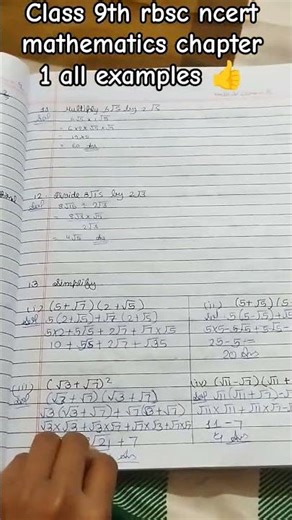 Class 9th rbsc ncert
mathematics chapter
1 all examples 👍
11. Multiply 6√5 by 2√5
Sol 6√5 × 2√5
12. Divide 8√15 by 2√3
Sol 8√15 ÷ 2√3
= 8√3 × √5
2√3
= 4√5 Ans
13 Simplify
(i) (5+√7) (2+√5)
Sol 5(2+√5)+√7 (2+√5)
5×2+5√5+2√7+√7×√5
10 + 5√5 + 2√7 + √35
(ii) (5+√5) (5
5×5-5√5+5√5-
25-5
20 Ans
(iii) (√3+√7)²
(√3+√7) (√3+√7)
√3(√3+√7)+√7(√3+√7)
√3×√3+√3×√7+√7×√3+√7×√7
√21+7
Ans
(iv) (√11-√7)(√11+
Sol √11(√11+√7)-√7
√11×√11+√11×√7-√
11-7
4 Ans